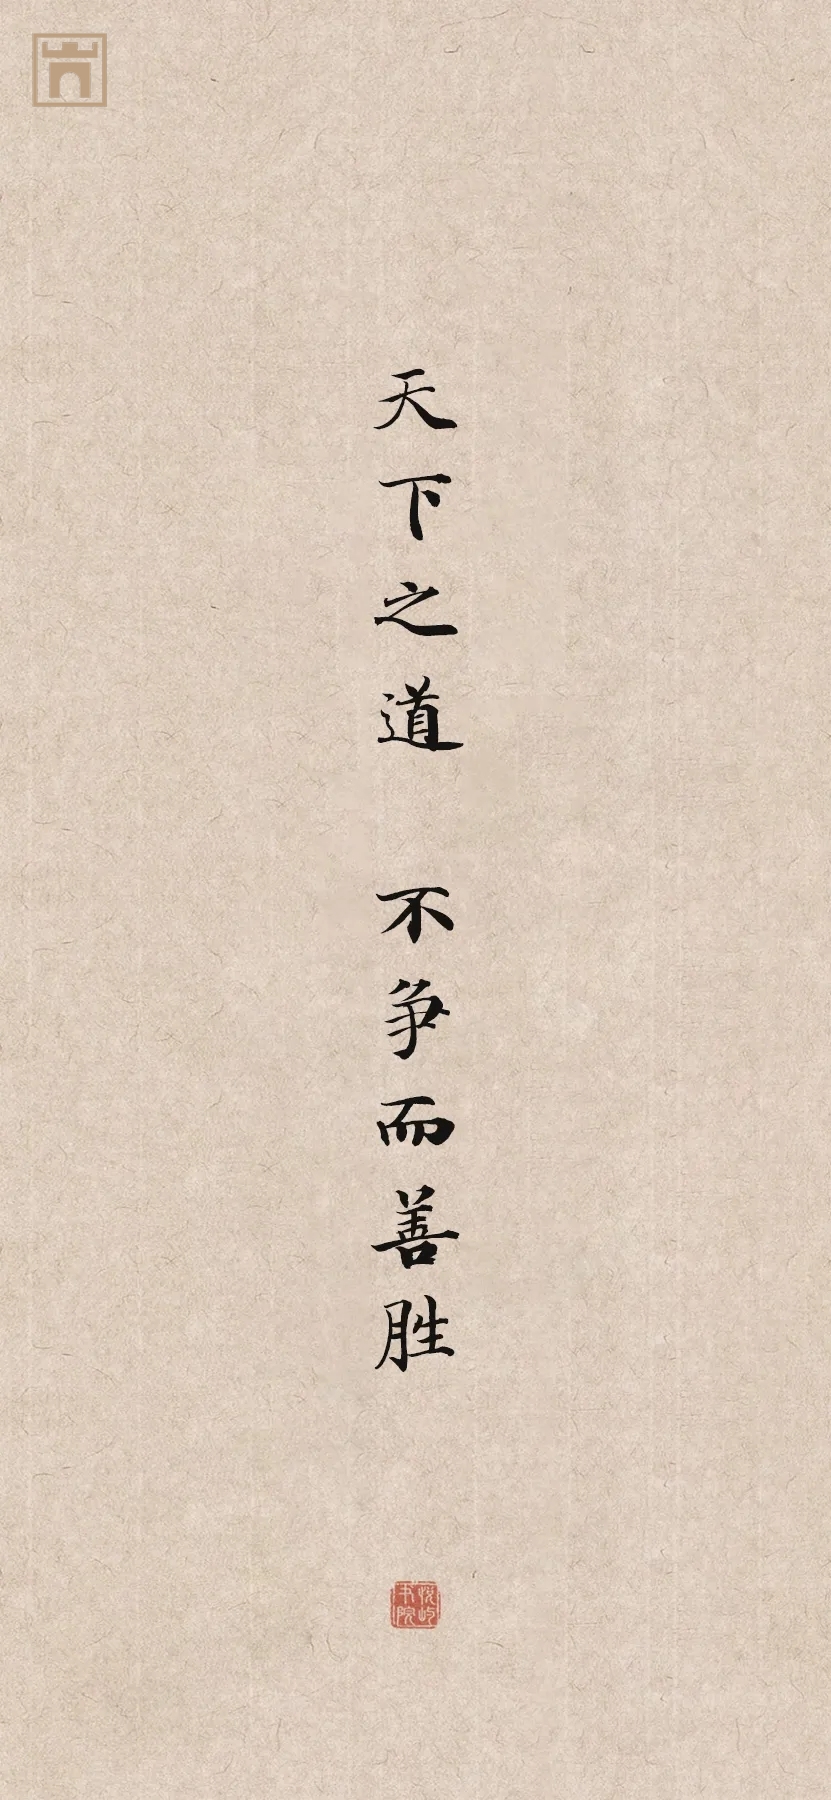 天下之道 不争而善胜
悦屿
书院